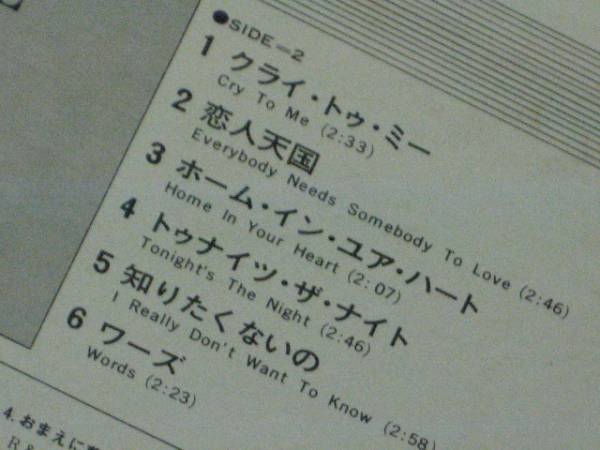 ●SIDE—2
1 クライ・トゥ・ミー
Cry To Me (2:33)
2 恋人天国
Everybody Needs Somebody To Love (2:46)
3 ホーム・イン・ユア・ハート
Home In Your Heart (2:07)
4 トゥナイツ・ザ・ナイト
Tonight's The Night (2:46)
5 知りたくないの
I Really Don't Want To Know (2:58)
6 ワーズ
Words (2:23)
4.おまえに
R&